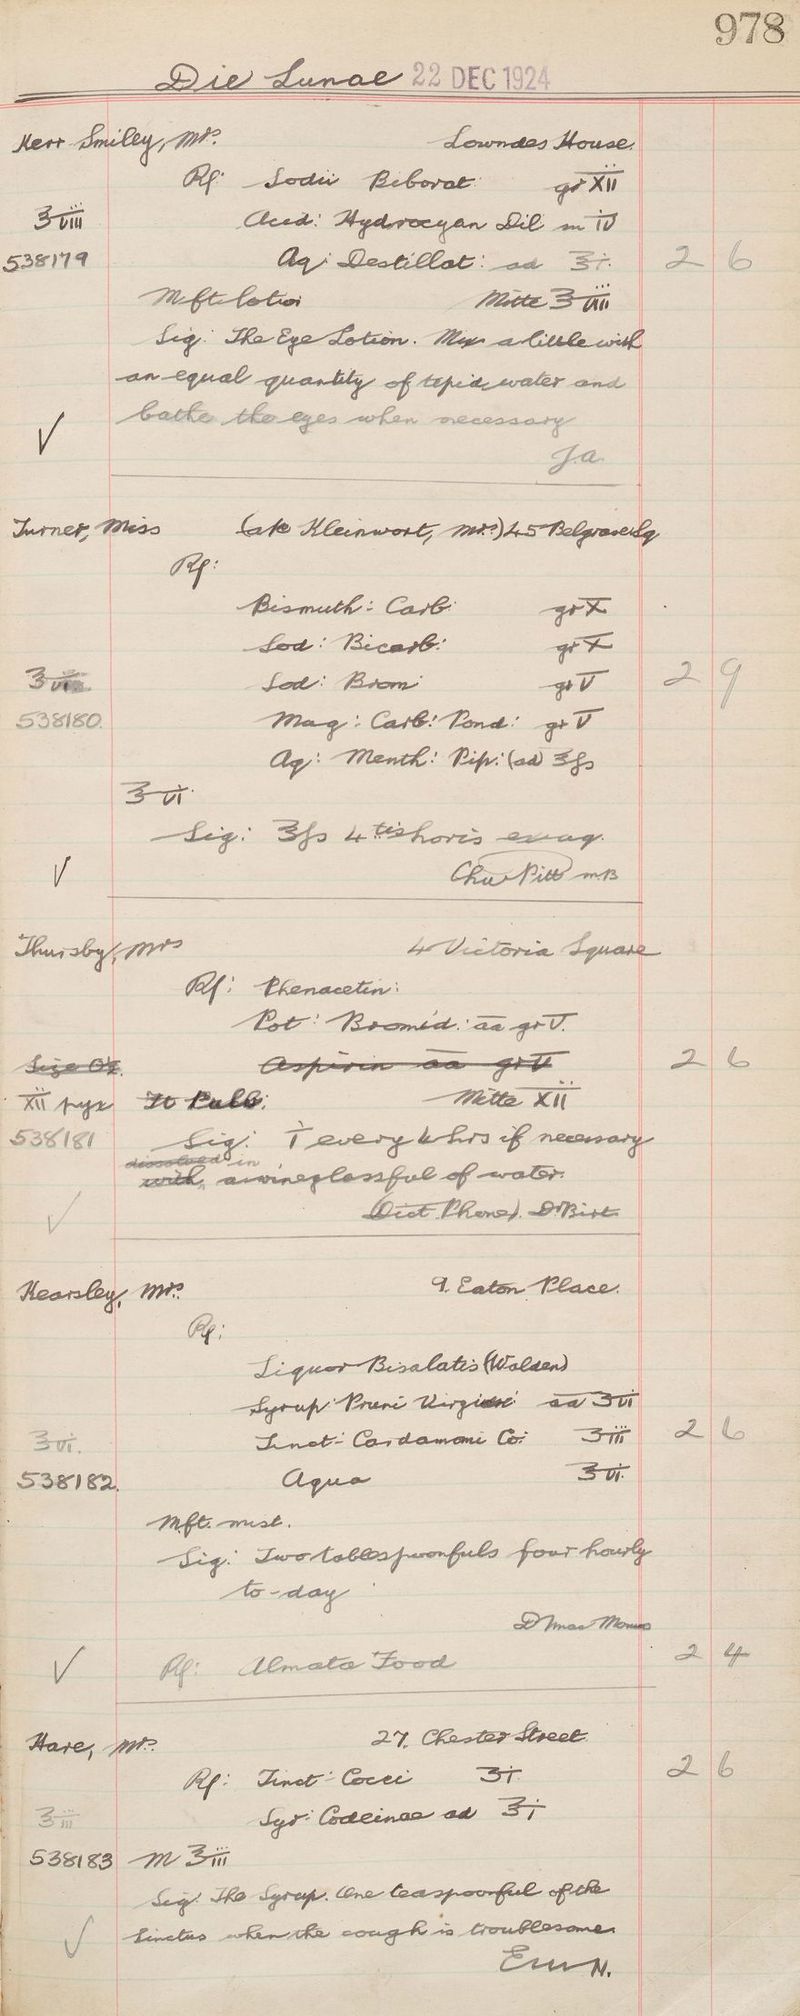 978
Die Lunae 22 DEC 1924
Kerr Smiley, Mrs. Lowndes House.
Rx: Sodii Biborat: gr XII
℥VIII Acid: Hydrocyan Dil m IV
538179 Aq: Destillat: ad ℥i. 2 6
M ft lotio Mitte ℥VIII
Sig: The Eye Lotion. Mix a little with
an equal quantity of tepid water and
bathe the eyes when necessary
J.A.
Turner, Miss (a/c Kleinwort, Mrs.) 45 Belgrave Sq
Rx:
Bismuth: Carb: gr X
Sod: Bicarb: gr X
℥VI Sod: Brom: gr V 2 9
538180. Mag: Carb: Pond: gr V
Aq: Menth: Pip: (ad) ℥fs
℥VI
Sig: ℥fs 4tis horis ex aq.
Chas Pitt M.B
Thursby, Mrs 4 Victoria Square
Rx: Phenacetin:
Pot: Bromid: aa gr V.
Size O2. Aspirin aa gr V 2 6
XII pyx Ft Pulv: Mitte XII
538181 Sig: T every 4 hrs if necessary
dissolved in
with, a wineglassful of water.
(Dict Phone). Dr Birt
Kearsley, Mrs. 9. Eaton Place.
Rx:
Liquor Bisalatis (Walden)
Syrup: Pruni Virgin: aa ʒVI
℥VI. Tinct: Cardamomi Co: ʒIII 2 6
538182. Aqua ℥VI.
Mft. mist.
Sig: Two tablespoonfuls four hourly
to-day
Rx: Almata Food 2 4
Hare, Mrs. 27, Chester Street
Rx: Tinct: Cocci ʒi 2 6
℥III Syr: Codeinae ad ℥i
538183 M ℥III
Sig: The Syrup. One teaspoonful of the
Linctus when the cough is troublesome.